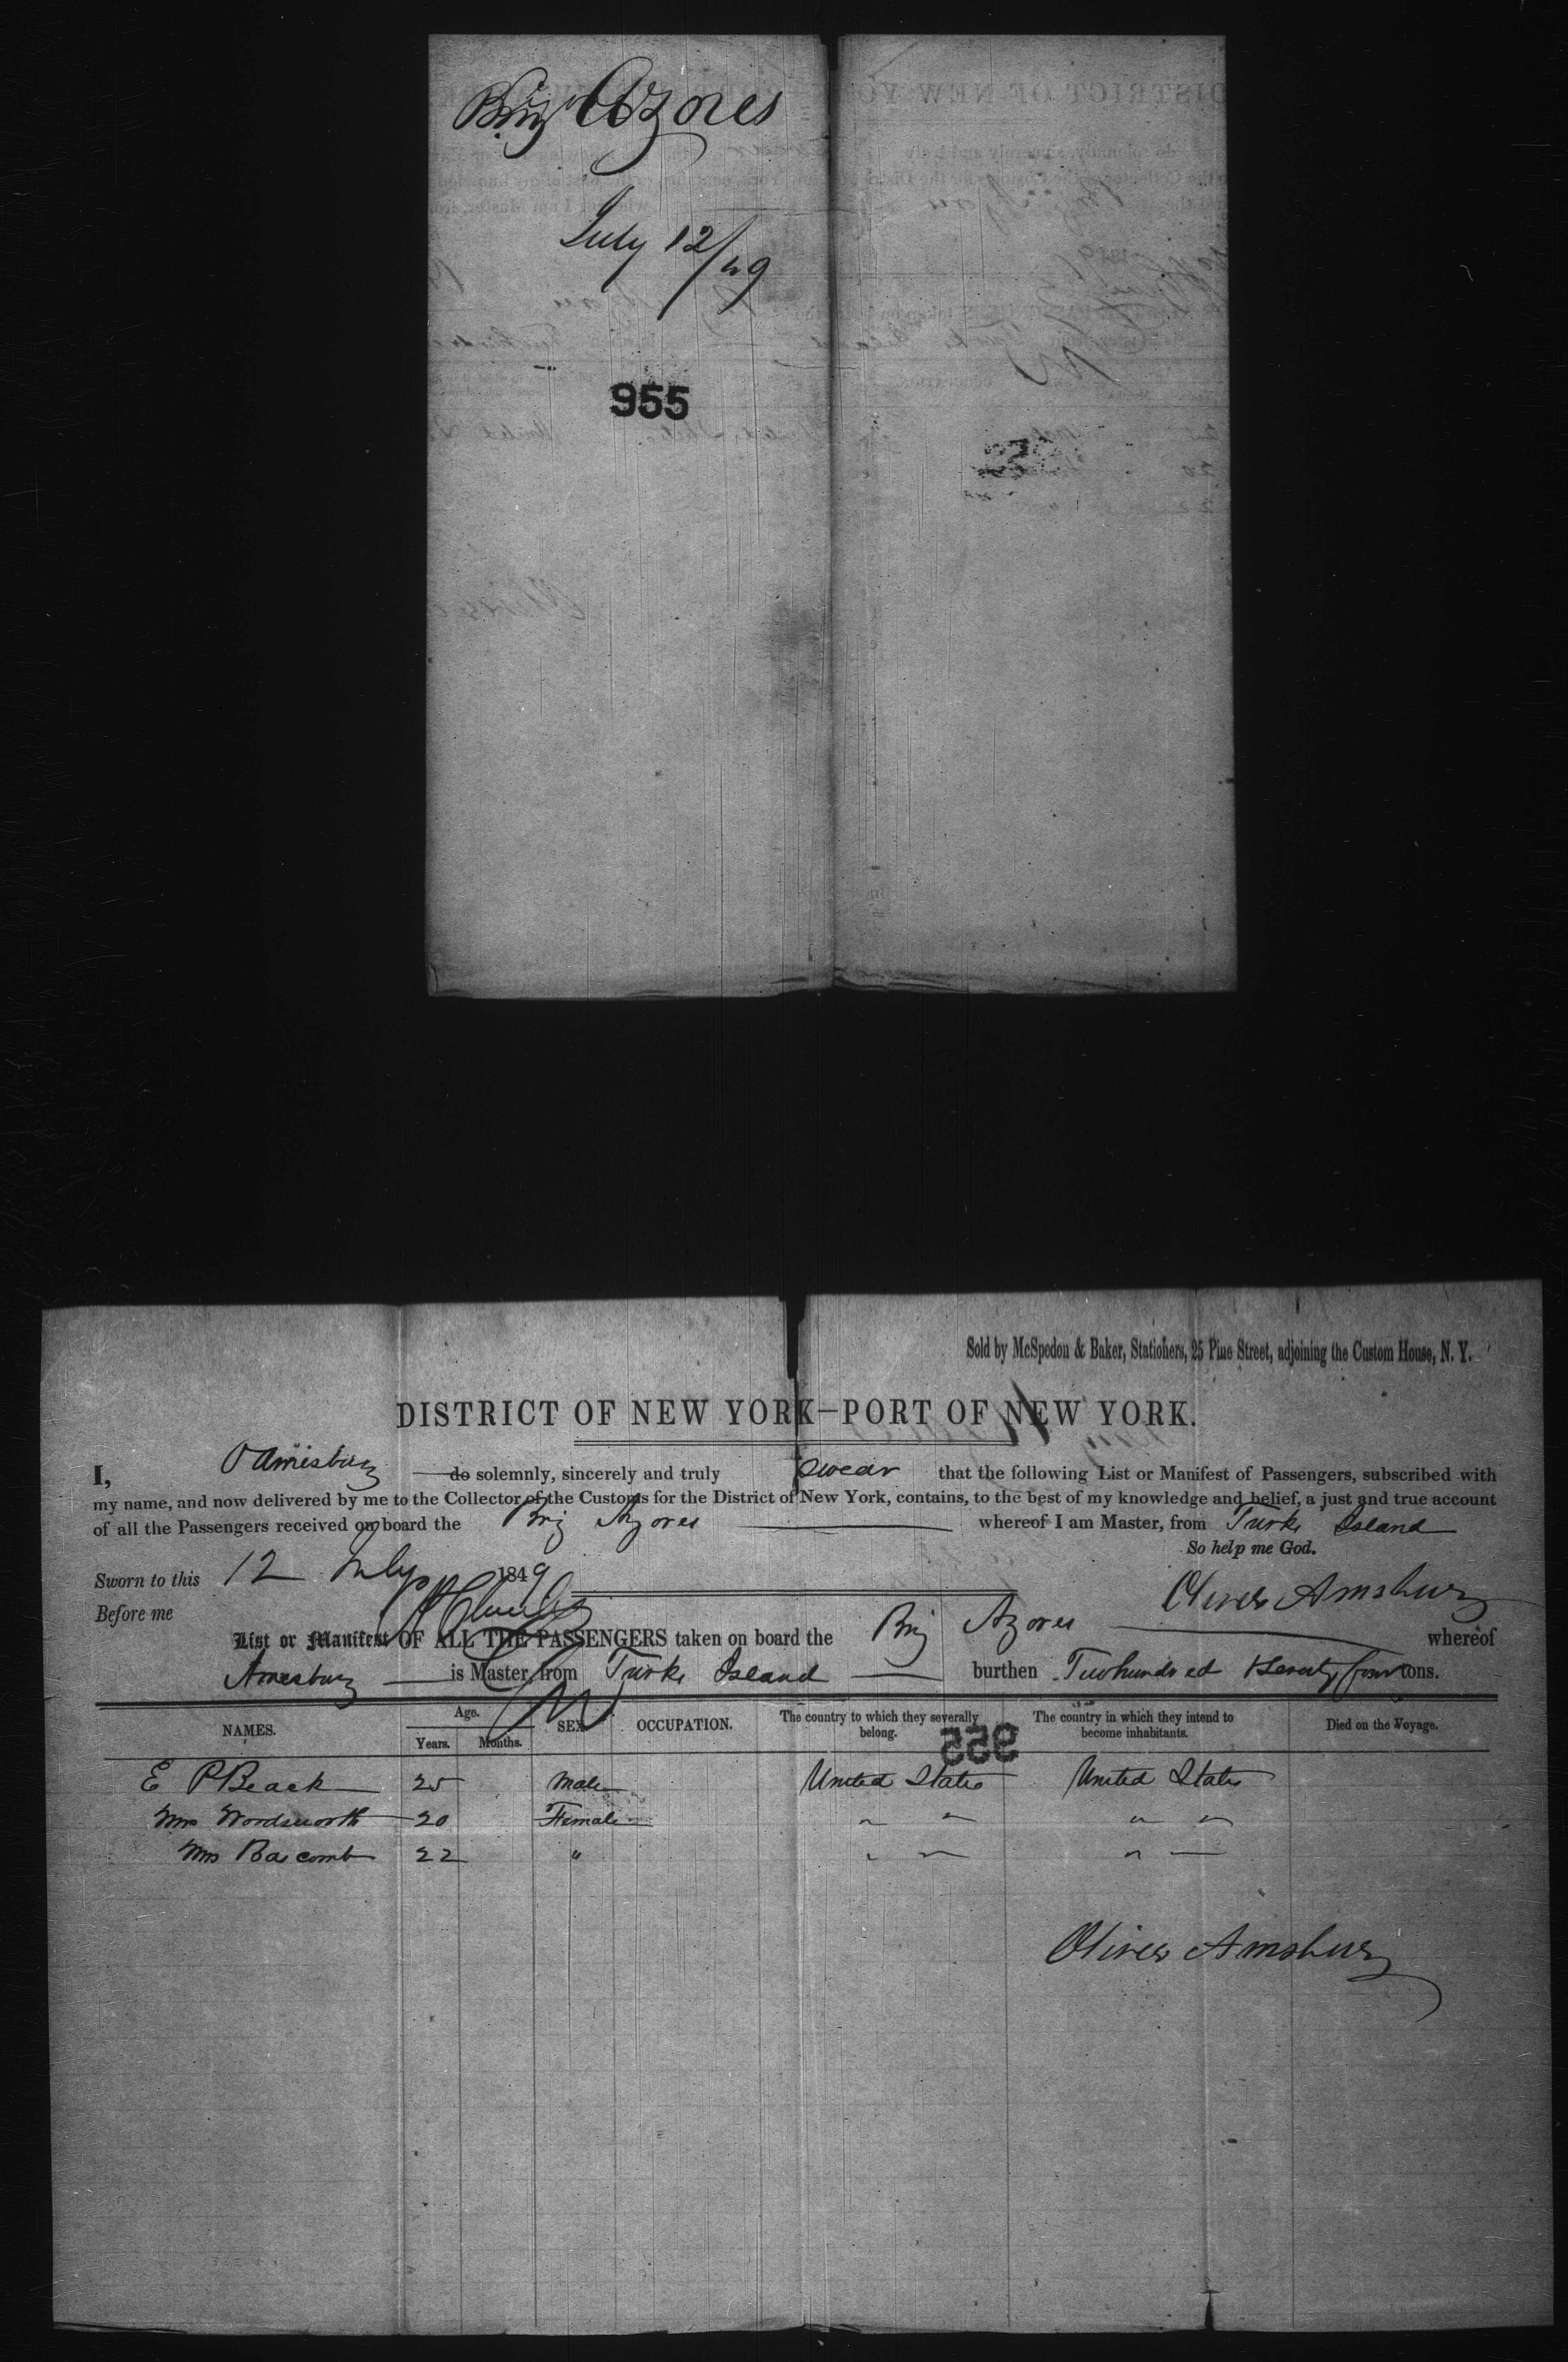 Brig Azores
July 12/49
955
Sold by McSpedon & Baker, Stationers, 25 Pine Street, adjoining the Custom House, N. Y.
DISTRICT OF NEW YORK—PORT OF NEW YORK.
I, O Amesbury do solemnly, sincerely and truly swear that the following List or Manifest of Passengers, subscribed with
my name, and now delivered by me to the Collector of the Customs for the District of New York, contains, to the best of my knowledge and belief, a just and true account
of all the Passengers received on board the Brig Azores whereof I am Master, from Turks Island
So help me God.
Sworn to this 12 July 1849
Before me
Oliver Amsbury
List or Manifest OF ALL THE PASSENGERS taken on board the Brig Azores whereof
Amesbury is Master, from Turks Island burthen Two hundred & Seventy four tons.
NAMES. Age. Years. Months. SEX OCCUPATION. The country to which they severally belong. The country in which they intend to become inhabitants. Died on the Voyage.
955
E P Beach 25 Male United States United States
Mrs Wordsworth 20 Female " " " "
Mrs Bascomb 22 " " " " "
Oliver Amsbury